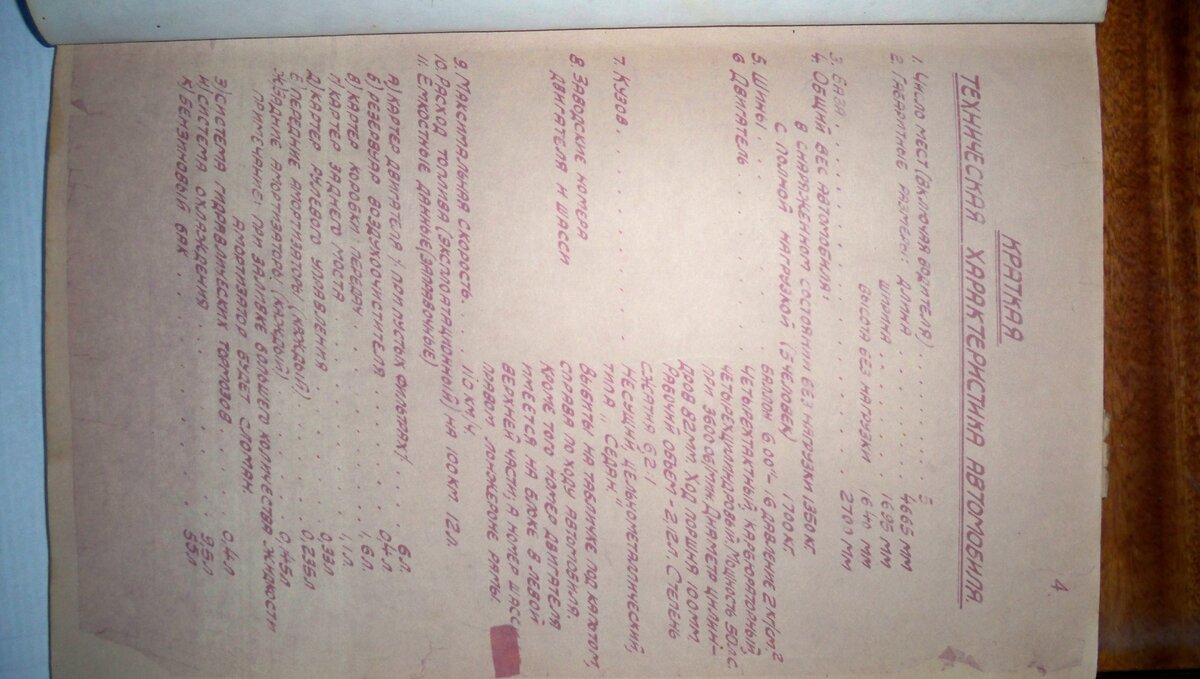 4.
КРАТКАЯ
ТЕХНИЧЕСКАЯ ХАРАКТЕРИСТИКА АВТОМОБИЛЯ.
1. Число мест (включая водителя) . . . . . . . 5
2. Габаритные размеры: длина . . . . . 4665 мм
ширина . . . . . 1695 мм
высота без нагрузки 1640 мм
3. База . . . . . . . . . . . . . . . . 2700 мм
4. Общий вес автомобиля:
в снаряженном состоянии без нагрузки 1350 кг
с полной нагрузкой (5 человек) 1700 кг.
5. Шины . . . . . . . . . Баллон 6.00"–16 давление 2 кг/см.²
6 Двигатель . . . . . . . Четырехтактный, карбюраторный,
четырехцилиндровый. Мощность 50 л.с.
при 3600 об/мин. Диаметр цилинд-
дров 82 мм. Ход поршня 100 мм
Рабочий объем – 2,12 л. Степень
сжатия 6,2:1
7. Кузов . . . . . . . . . Несущий, цельнометаллический,
типа „Седан"
8. Заводские номера
двигателя и шасси
Выбиты на табличке под капотом,
справа по ходу автомобиля.
Кроме того номер двигателя
имеется на блоке в левой
верхней части, а номер шасс
правом лонжероне рамы.
9. Максимальная скорость . . . . . 110 км/ч.
10. Расход топлива (эксплоатационный) на 100 км. 12 л.
11. Емкостные данные (заправочные)
а) картер двигателя /при пустых фильтрах/ . . . 6 л.
б) резервуар воздухоочистителя . . . . . 0,4 л
в) картер коробки передач . . . . . . 1,6 л
г) картер заднего моста . . . . . . . 1,1 л
д) картер рулевого управления . . . . . 0,33 л
е) передние амортизаторы (каждый) . . . . 0,235 л
ж) задние амортизаторы (каждый) . . . . 0,145 л
примечание: при заливке большего количества жидкости
амортизатор будет сломан.
з) система гидравлических тормозов . . . . 0,4 л
и) система охлаждения . . . . . . . 9,5 л
к) бензиновый бак . . . . . . . . 55 л